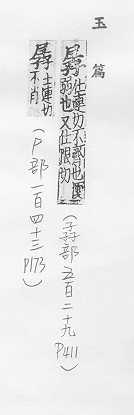 玉篇
孱仕連切不也
弱也又仕限切
(孨部五百二十九 P411)
孱士連切
不肖
(尸部一百四十三 P173)